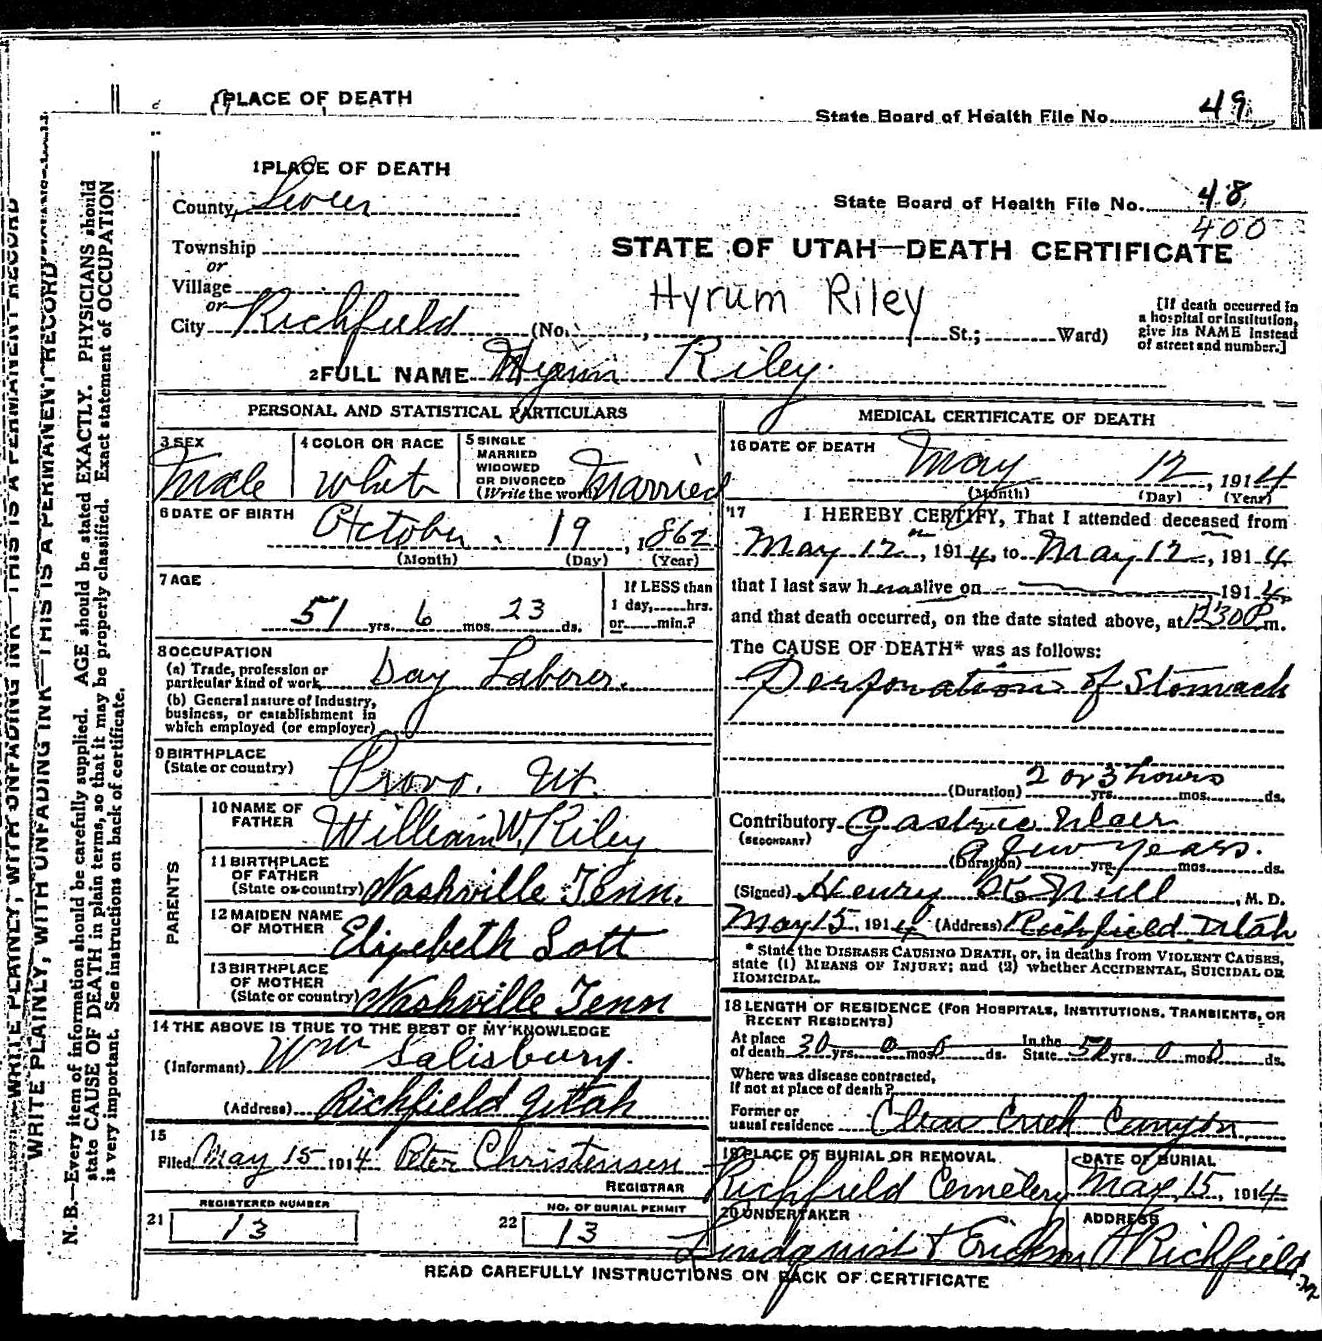 PLACE OF DEATH
State Board of Health File No. 49
1 PLACE OF DEATH
County, Sevier
State Board of Health File No. 48
400
Township
or
Village
or
City Richfield
STATE OF UTAH—DEATH CERTIFICATE
Hyrum Riley
(No. , St.; Ward)
[If death occurred in
a hospital or institution,
give its NAME instead
of street and number.]
2 FULL NAME Hyrum Riley.
PERSONAL AND STATISTICAL PARTICULARS
3 SEX
Male
4 COLOR OR RACE
White
5 SINGLE
MARRIED
WIDOWED
OR DIVORCED
(Write the word) Married
6 DATE OF BIRTH
October 19, 1862
(Month) (Day) (Year)
7 AGE
51 yrs. 6 mos. 23 ds.
If LESS than
1 day, hrs.
or min.?
8 OCCUPATION
(a) Trade, profession or
particular kind of work Day Laborer.
(b) General nature of industry,
business, or establishment in
which employed (or employer)
9 BIRTHPLACE
(State or country) Provo. Ut.
PARENTS
10 NAME OF
FATHER William W. Riley
11 BIRTHPLACE
OF FATHER
(State or country) Nashville Tenn.
12 MAIDEN NAME
OF MOTHER Elizebeth Sott
13 BIRTHPLACE
OF MOTHER
(State or country) Nashville Tenn
14 THE ABOVE IS TRUE TO THE BEST OF MY KNOWLEDGE
(Informant) Wm Salisbury.
(Address) Richfield Utah
15
Filed May 15 1914 Peter Christensen
REGISTRAR
21 REGISTERED NUMBER
13
22 NO. OF BURIAL PERMIT
13
MEDICAL CERTIFICATE OF DEATH
16 DATE OF DEATH
May 12, 1914
(Month) (Day) (Year)
17 I HEREBY CERTIFY, That I attended deceased from
May 12", 1914, to May 12, 1914
that I last saw h alive on 1914
and that death occurred, on the date stated above, at 12 30 P m.
The CAUSE OF DEATH* was as follows:
Perforation of Stomach
2 or 3 hours
(Duration) yrs. mos. ds.
Contributory Gastric Ulcer
(SECONDARY) a few years.
(Duration) yrs. mos. ds.
(Signed) Henry , M. D.
May 15, 1914 (Address) Richfield Utah
* State the DISEASE CAUSING DEATH, or, in deaths from VIOLENT CAUSES,
state (1) MEANS OF INJURY; and (2) whether ACCIDENTAL, SUICIDAL OR
HOMICIDAL.
18 LENGTH OF RESIDENCE (FOR HOSPITALS, INSTITUTIONS, TRANSIENTS, OR
RECENT RESIDENTS)
At place In the
of death 30 yrs. 0 mos. 0 ds. State yrs. 0 mos. 0 ds.
Where was disease contracted,
if not at place of death?
Former or
usual residence Clear Creek Canyon
19 PLACE OF BURIAL OR REMOVAL
Richfield Cemetery
DATE OF BURIAL
May 15, 1914
20 UNDERTAKER
Lindquist & Erickson
ADDRESS
Richfield
READ CAREFULLY INSTRUCTIONS ON BACK OF CERTIFICATE
WRITE PLAINLY, WITH UNFADING INK—THIS IS A PERMANENT RECORD
WRITE PLAINLY, WITH UNFADING INK—THIS IS A PERMANENT RECORD
N. B.—Every item of information should be carefully supplied. AGE should be stated EXACTLY. PHYSICIANS should
state CAUSE OF DEATH in plain terms, so that it may be properly classified. Exact statement of OCCUPATION
is very important. See instructions on back of certificate.